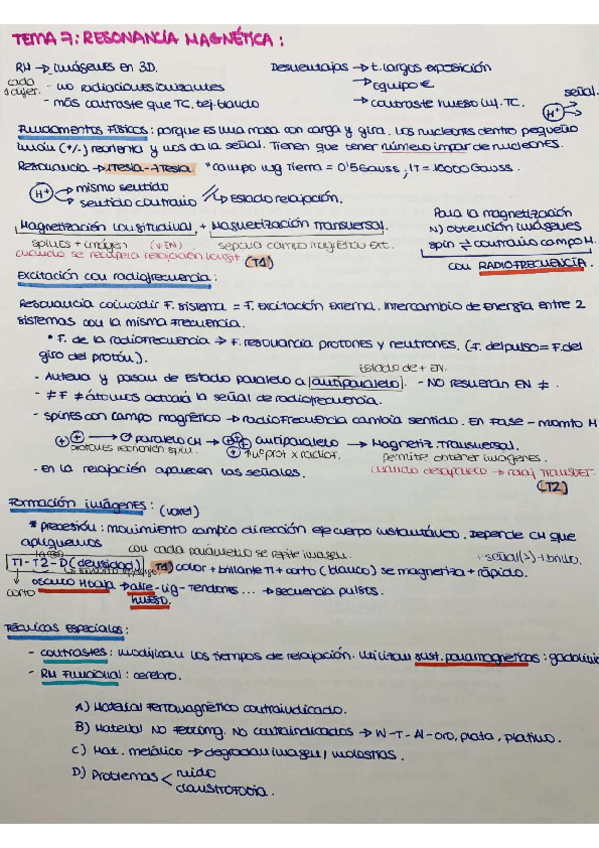 TEMA 7: RESONANCIA MAGNÉTICA:
RM → imágenes en 3D.
Desventajas → t. largos exposición
- no radiaciones ionizantes
→ equipo €
- más contraste que TC. tej. blando
→ contraste hueso inf. TC.
señal.
H+
Fundamentos físicos: porque es una masa con carga y gira. Los nucleones dentro pequeño
imán (+/-) reorienta y nos da la señal. Tienen que tener número impar de nucleones.
Resonancia → 1Tesla-7Tesla. *campo mg Tierra = 0'5 Gauss, 1T = 10000 Gauss.
H+ → mismo sentido
→ sentido contrario // → Estado relajación.
Magnetización Longitudinal, + Magnetización Transversal.
spines + imágen (v.EN) separa campo magnético ext.
cuando se recupera relajación longit. (T1)
Para la magnetización
N) obtención imágenes
spin ⇄ contrario campo M.
con RADIOFRECUENCIA.
Excitación con radiofrecuencia:
Resonancia coincidir F. sistema = F. excitación externa. Intercambio de energía entre 2
sistemas con la misma frecuencia.
* F. de la radiofrecuencia → F. resonancia protones y neutrones. (F. del pulso = F. del
giro del protón).
Estado de + EN.
- Antena y pasan de estado paralelo a antiparalelo. - NO resuenan EN ≠.
- ≠ F ≠ átomos actuará la señal de radiofrecuencia.
- spines con campo magnético → radiofrecuencia cambia sentido. EN Fase - momto M
paralelo CM → antiparalelo → Magnetiz. Transversal.
↑ nº prot x radiof. permite obtener imágenes.
- en la relajación aparecen las señales.
cuando desaparece → relaj. TRANSVER.
(T2)
Formación imágenes: (voxel)
* precesión: movimiento cambio dirección eje cuerpo instantáneo. Depende CM que
apliquemos
con cada parámetro se repite imagen.
+ señal(s) + brillo.
T1 - T2 - D (densidad) T1) color + brillante T1 + corto (blanco) se magnetiza + rápido.
corto
aire - lig - tendones ... → secuencia pulsos.
hueso.
Técnicas especiales:
- contrastes: modifican los tiempos de relajación. Utilizan sust. paramagnéticas: gadolinio
- RM Funcional: cerebro.
A) Material ferromagnético contraindicado.
B) Material No ferromg. No contraindicados → W-T-Al-oro, plata, platino.
C) Mat. metálico → degradan imagen / molestias.
D) Problemas < ruido
claustrofobia.